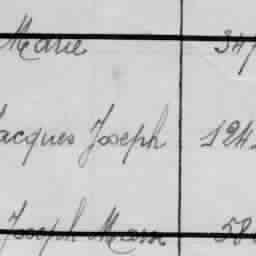 Marie 347
Jacques Joseph 124
Joseph Marie 58